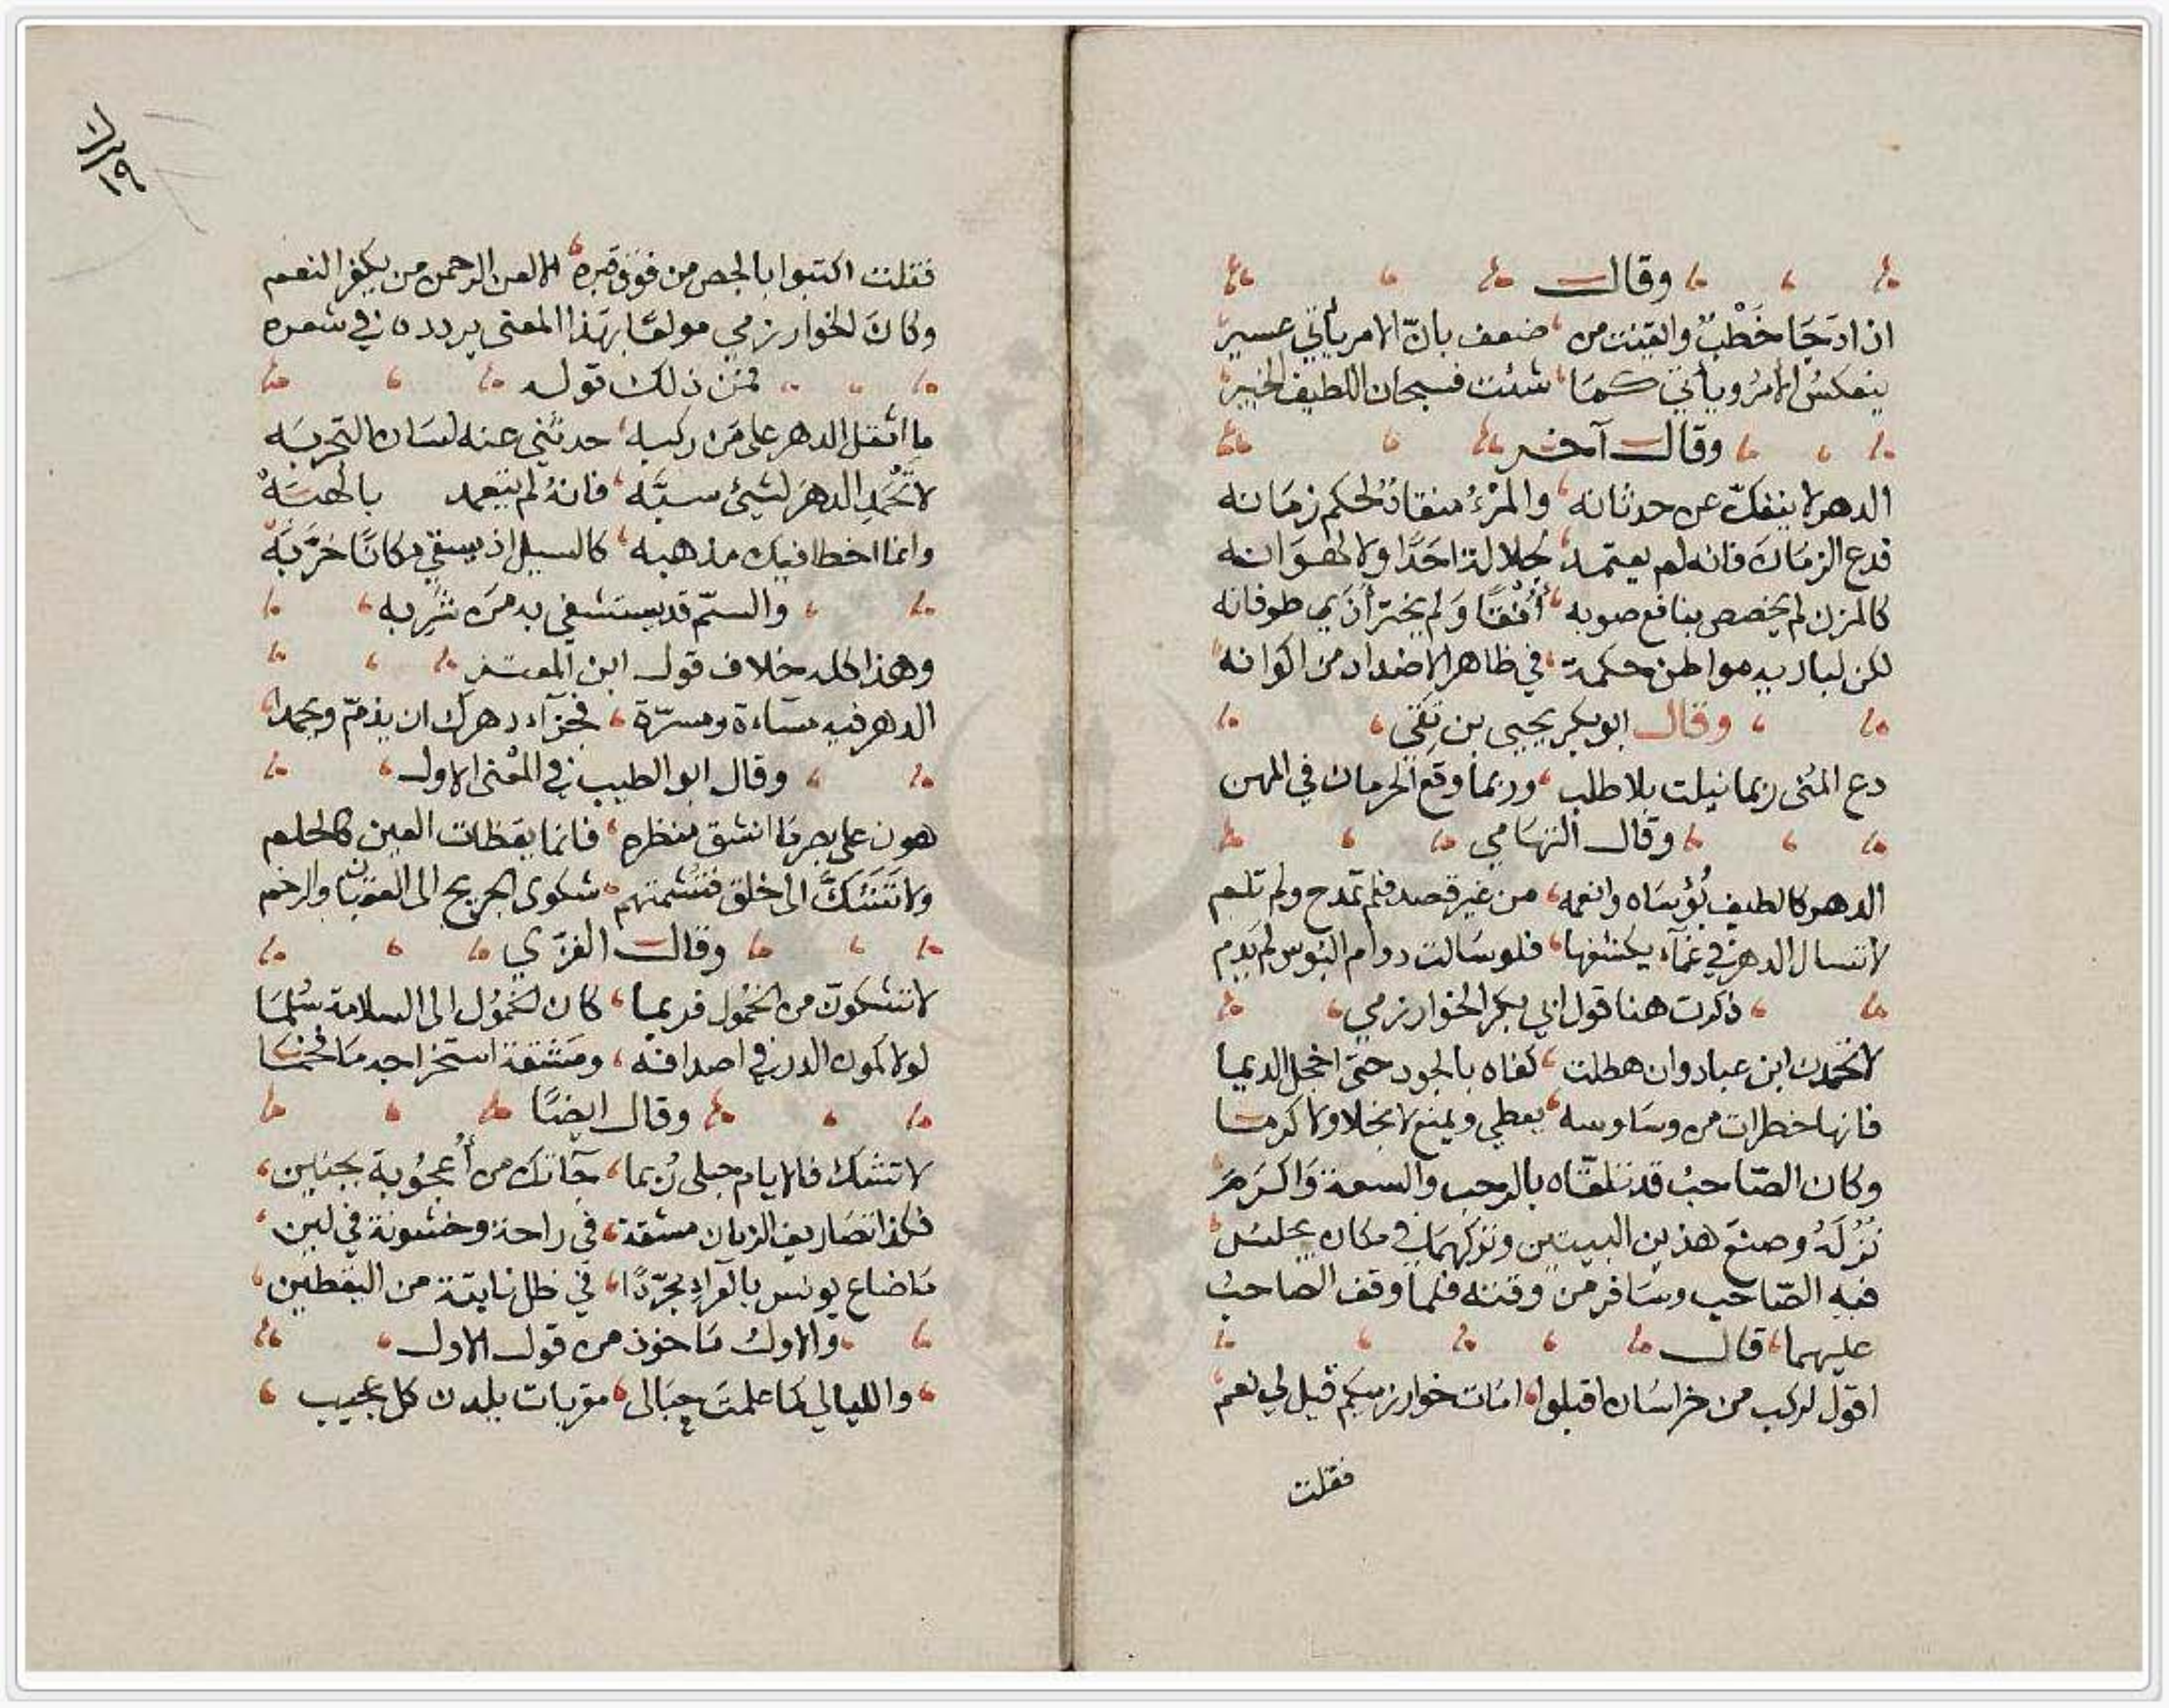 وقال
اذا دجا خَطْبٌ والقيت من ضعف بانّ الامر يأتي عسير
ينعكسُ الامرُ ويأتي كما شئت فسبحان اللطيف الخبير
وقال آخر
الدهر لا ينفكّ عن حدثانه والمرْءُ منقادٌ لحكم زمانه
فدع الزمان فانه لم يعتمد لجلالة احدًا ولا لهوانه
كالمزن لم يخصص بنافع صوبه أُفْقًا ولم يختر أذى طوفانه
لكن لباريه مواطن حكمة في ظاهر الاضداد من اكوانه
وقال ابو بكر يحيى بن بقي
دع المنى ربما نيلت بلا طلب وربما وقع الحرمان في المهن
وقال التهامي
الدهر كالطيف بُؤساه وانعمه من غير قصد فلم تمدح ولم تلم
لا تسال الدهر في غمآء يكشفها فلو سالت دوام البوس لم يدم
ذكرت هنا قول ابي بكر الخوارزمي
لا تحمدن ابن عباد وان هطلت كفاه بالجود حتى اخجل الديما
فانها خطرات من وساوسه يعطي ويمنع لا بخلا ولا كرما
وكان الصّاحبُ قد تلقّاه بالرحب والسعة وَاكرَمَ
نُزُلَهُ وصنعَ هذين البيتين وتركهما في مكان يجلسُ
فيه الصّاحب وسافر من وقته فلما وقف الصاحبُ
عليهما قال
اقول لركب من خراسان اقبلوا امات خوارزميكم قيل لي نعم
فقلت
فقلت اكتبوا بالجص من فوق قبره الا لعن الرحمن من يكفر النعم
وكان الخوارزمي مولعًا بهذا المعنى يردده في شعره
فمن ذلك قوله
ما اثقل الدهر على من ركبه حدثني عنه لسان التجربه
لا تَحْمَدِ الدهرَ لشيئ سببّه فانهُ لم يتعمد بالهبَهْ
وانما اخطا فيك مذهبه كالسيل اذ يسقي مكانًا خرّبَهْ
والسّم قد يستشفي به من شَرِبه
وهذا كله خلاف قول ابن المعتز
الدهر فيه مساءة ومسرّة فجزآء دهرك ان يذمّ ويحمدا
وقال ابو الطيب في المعْنى الاول
هون على بصر ما انشق منظره فانما يقظات العين كالحلم
ولا تَتَشَكَّ الى خلق فتُشمتهم شكوى الجريح الى الغربان والرخم
وقال الغزّي
لا تشكونّ من الخمول فربما كان الخمُول الى السلامة سُلما
لولا كمون الدر في اصدافه ومشقة استخراجه ما فخما
وقال ايضًا
لا تشك فالايام حبلى رُبما جآتك من أُعجُوبة بجنين
فكذا تصاريف الزمان مشقة في راحة وخشونة في لين
ما ضاع يونس بالعرآء مجرّدًا في ظل نابتة من اليقطين
والاولُ ماخوذ من قول الاول
والليالي كما علمتَ حبالى مقربات يلدن كل عجيب